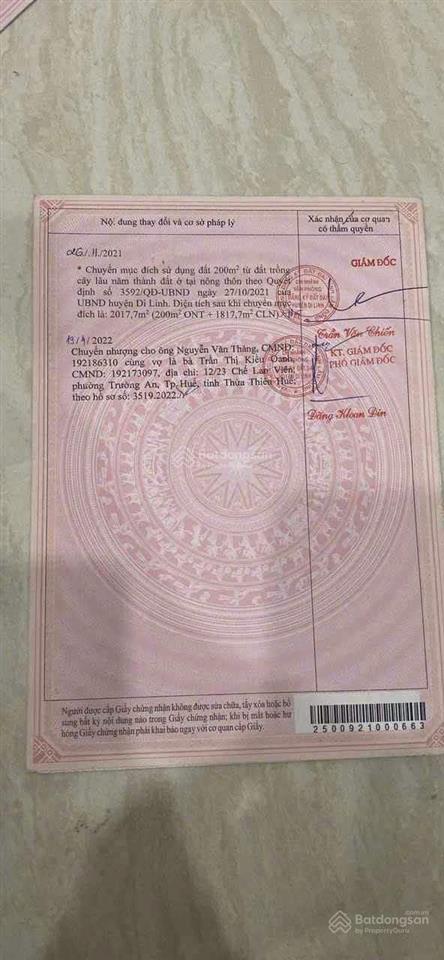 Nội dung thay đổi và cơ sở pháp lý
Xác nhận của cơ quan
có thẩm quyền
26/11/2021
* Chuyển mục đích sử dụng đất 200m² từ đất trồng
cây lâu năm thành đất ở tại nông thôn theo Quyết
định số 3592/QĐ-UBND ngày 27/10/2021 của
UBND huyện Di Linh. Diện tích sau khi chuyển mục
đích là: 2017,7m² (200m² ONT + 1817,7m² CLN)
GIÁM ĐỐC
Trần Văn Chiến
13/4/2022
Chuyển nhượng cho ông Nguyễn Văn Thăng, CMND:
192186310 cùng vợ là bà Trần Thị Kiều Oanh,
CMND: 192173097, địa chỉ: 12/23 Chế Lan Viên,
phường Trường An, Tp.Huế, tỉnh Thừa Thiên Huế;
theo hồ sơ số: 3519.2022
KT. GIÁM ĐỐC
PHÓ GIÁM ĐỐC
Batdongsan
Người được cấp Giấy chứng nhận không được sửa chữa, tẩy xóa hoặc bổ
sung bất kỳ nội dung nào trong Giấy chứng nhận; khi bị mất hoặc hư
hỏng Giấy chứng nhận phải khai báo ngay với cơ quan cấp Giấy.
2500921000663
Batdongsan
by PropertyGuru